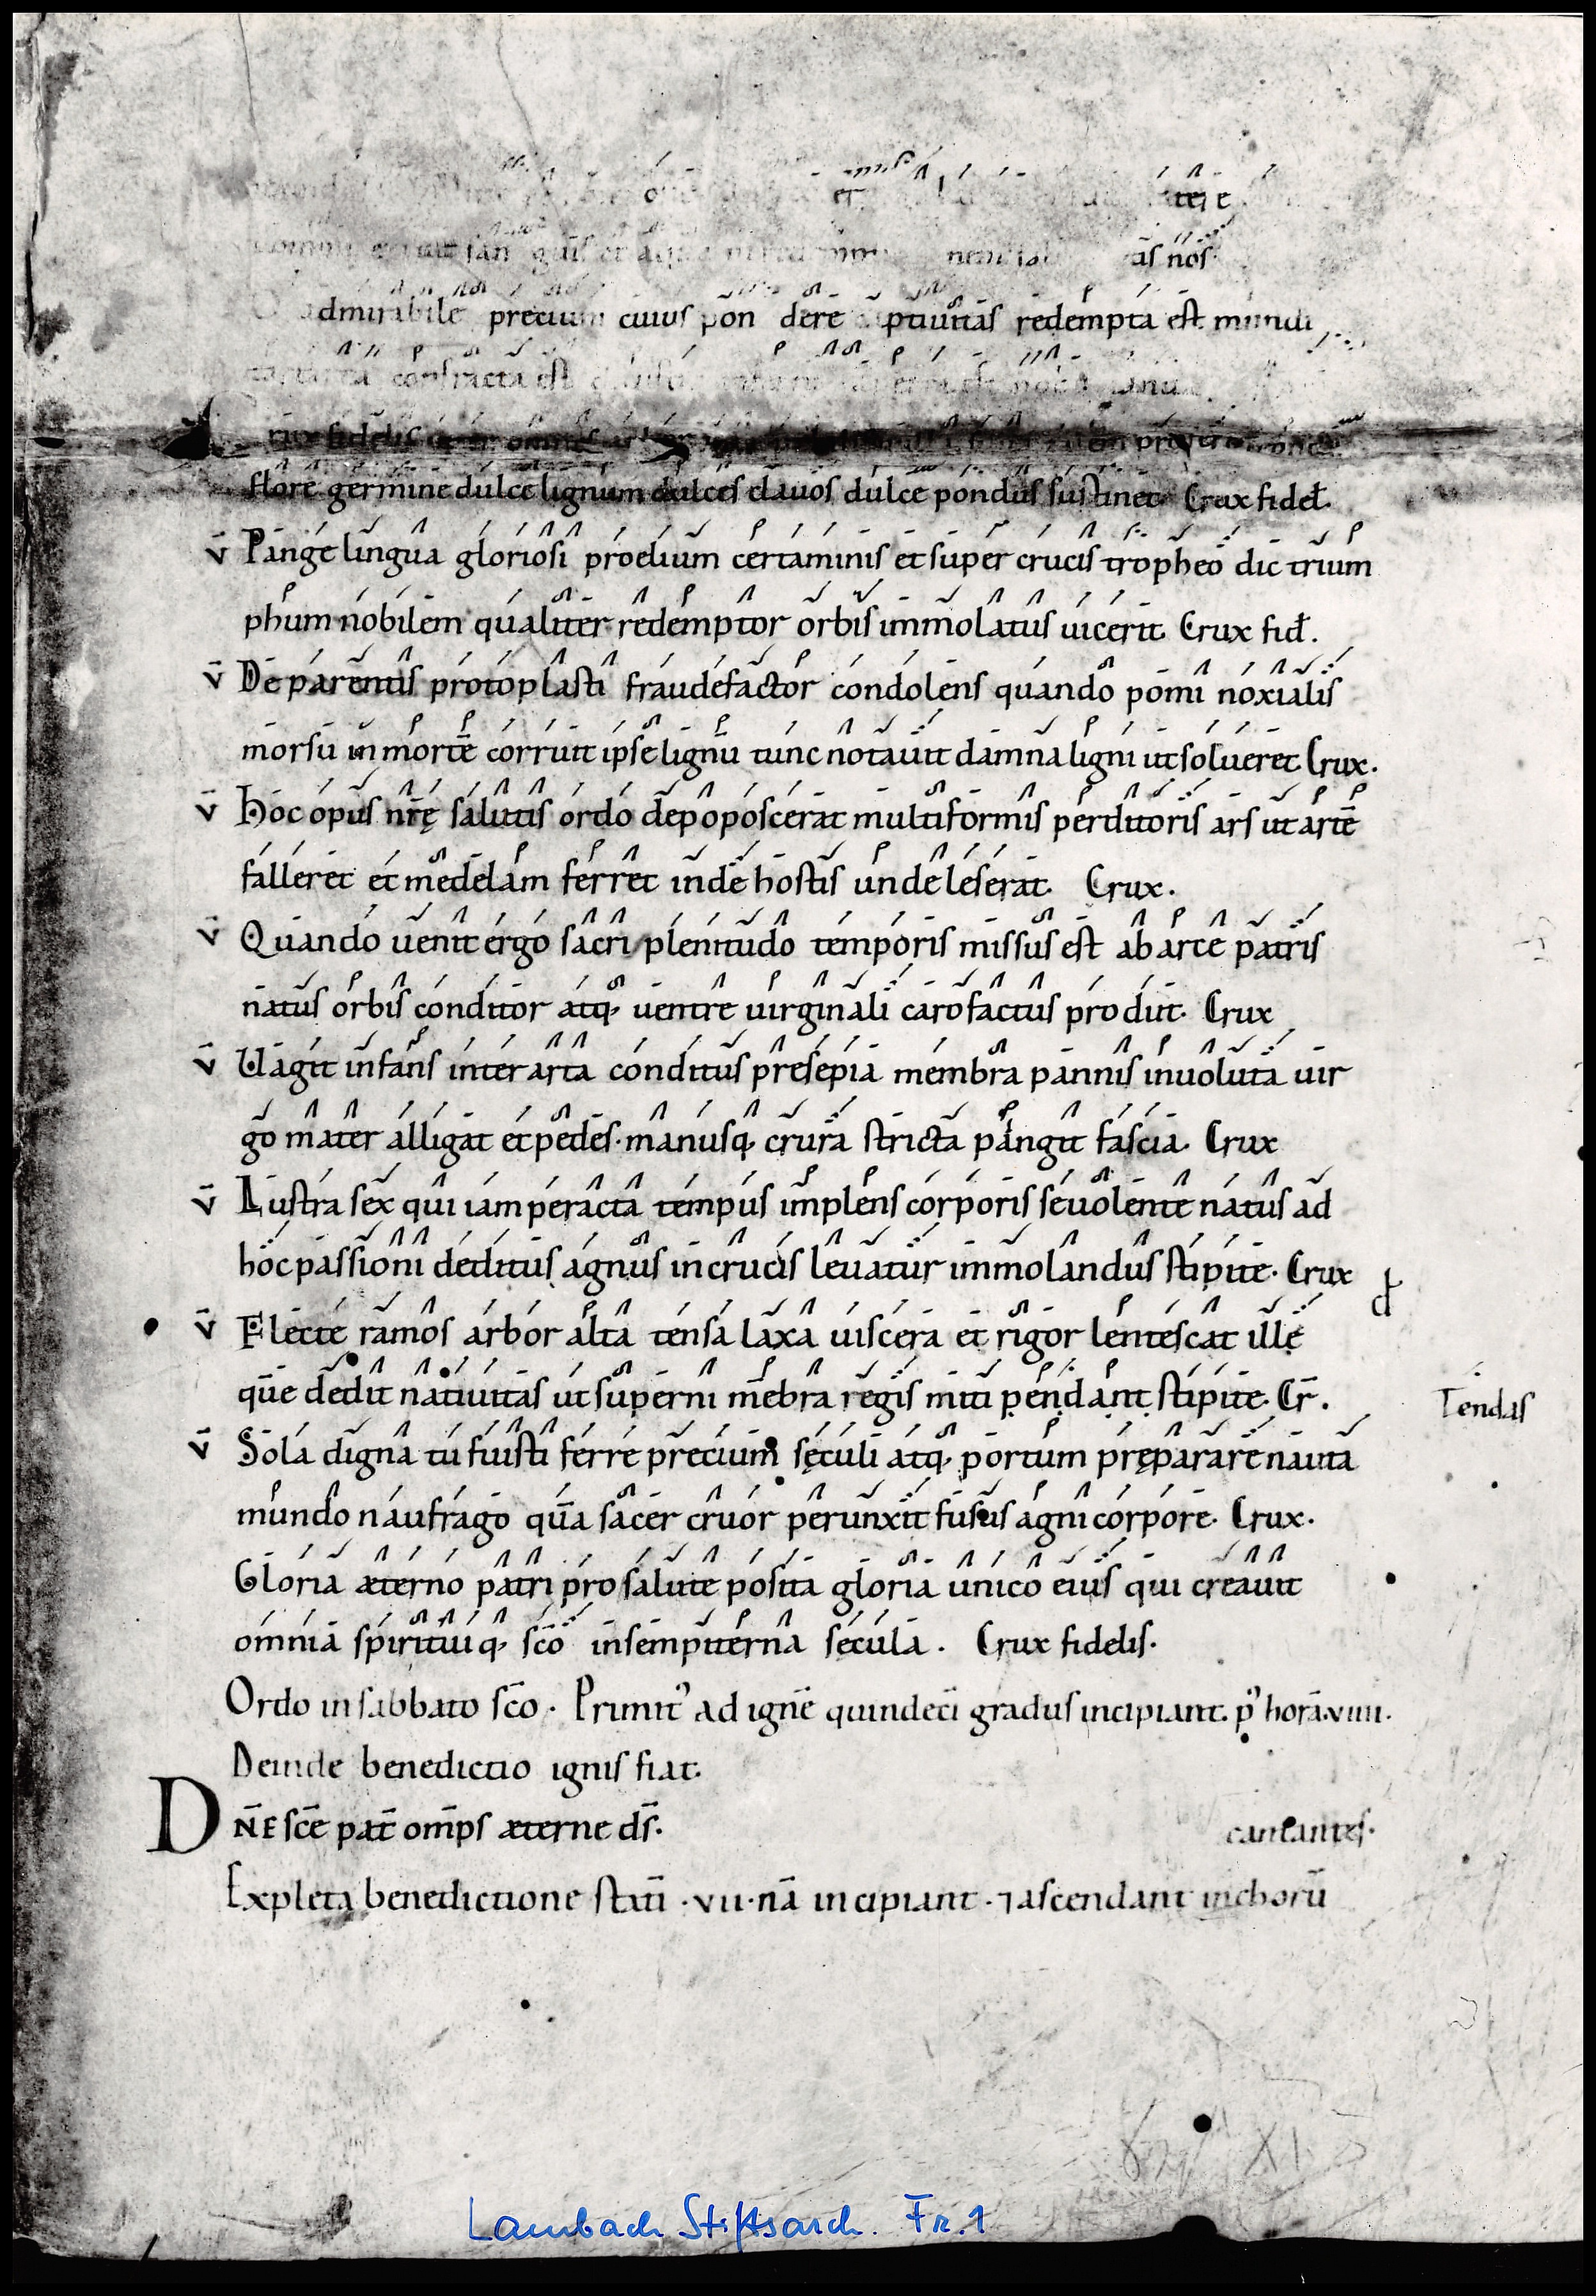 er tere
san guis et aqua as nos
dmirabile precium cuius pon dere captiuitas redempta est mundi
confracta est nobis
rux fidelis inter omnes
flore germine dulce lignum dulces clauos dulce pondus sustinet. Crux fidel.
v̄ Pange lingua gloriosi proelium certaminis et super crucis tropheo dic trium
phum nobilem qualiter redemptor orbis immolatus uicerit. Crux fid.
v̄ De parentis protoplasti fraude factor condolens quando pomi noxialis
morsu in mortē corruit ipse lignū tunc notauit damna ligni ut solueret Crux.
v̄ Hoc opus nr̄ę salutis ordo depoposcerat multiformis perditoris ars ut artē
falleret et medelam ferret inde hostis unde leserat. Crux.
v̄ Quando uenit ergo sacri plenitudo temporis missus est ab arce patris
natus orbis conditor atq; uentre uirginali caro factus prodiit. Crux
v̄ Uagit infans inter arta conditus presepia membra pannis inuoluta uir
go mater alligat et pedes. manusq; crura stricta pangit fascia. Crux
v̄ Lustra sex qui iam peracta tempus implens corporis se uolente natus ad
hoc passioni deditus agnus in crucis leuatur immolandus stipite. Crux
v̄ Flecte ramos arbor alta tensa laxa uiscera et rigor lentescat ille
que dedit natiuitas ut superni mēbra regis miti pendant stipite. Cr̄.
Tendas
v̄ Sola digna tu fuisti ferre precium sęculi atq; portum pręparare nauta
mundo naufrago quā sacer cruor perunxit fusus agni corpore. Crux.
Gloria æterno patri pro salute posita gloria unico eius qui creauit
omnia spirituiq; scō in sempiterna secula. Crux fidelis.
Ordo in sabbato scō. Primit᷒ ad ignē quindeci gradus incipiant. p᷒ horā.viiii.
Deinde benedictio ignis fiat.
DN̄E scē pat̄ omp̄s æterne ds̄.
cantantes.
Expleta benedictione statī .vii. nā incipiant. ⁊ ascendant in chorū
Lambach Stiftsarch. Fr. 1